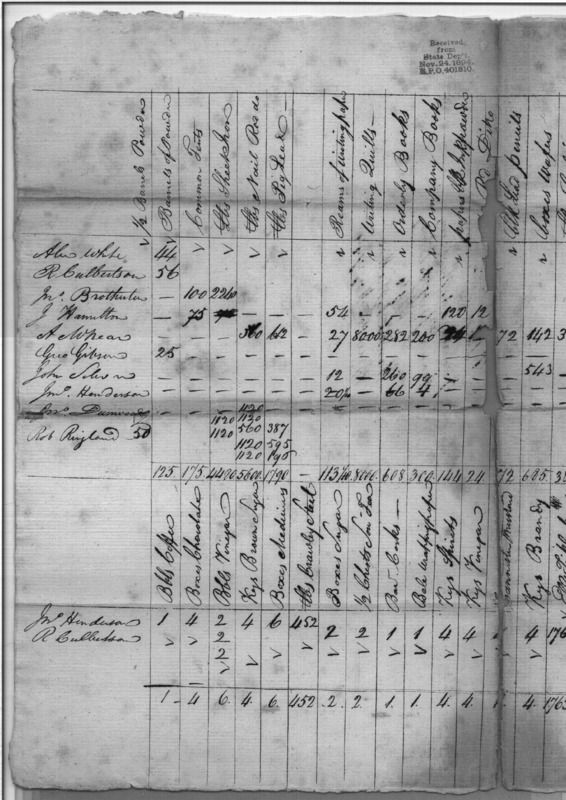 Received
from
State Dep't.
Nov. 24. 1894.
R.P.O. 401810.
½ Barrels Powder Barrels of Powder Common Tents lbs Sheet Iron lbs Nail Rods lbs Pig Lead Reams of Writing paper Writing Quills Orderly Books Company Books papers Ink powder Red Ditto Blk Lead pencils boxes Wafers
Alex White 44
R. Culbertson 56
Jno. Brotherton — 100 2240
J Hamilton — 75 — — — 54 — — — 120 12
A McLean — — 560 112 — 27 8000 282 200 24 — 72 142 3
Geo Gibson 25 — — — — — — — — — —
John — — — — — 12 — 260 99 — — — 543 —
Jno. Henderson — — — — — 20 — 66 4 — — — —
Jno. 1120
Rob Ringland 50 1120 1120
1120 560 387
1120 595
1120
125. 175. 4490 5600 1790 — 113 8000. 608 300 144 24 72 685
Bbls Coffee Boxes Chocolate Bbls Vinegar Kegs Brown Sugar Boxes Medicines lbs Crawley Steel Boxes Sugar ½ Chests Tea Corks Bale Kegs Spirits Kegs Vinegar Kegs Brandy
Jno. Henderson 1 4 2 4 6 452 2 2 1 1 4 4 1 4 176
R Culbertson 2
2
1 — 4 6. 4. 6. 452 . 2 . 2. 1. 1. 4. 4. 4. 1763